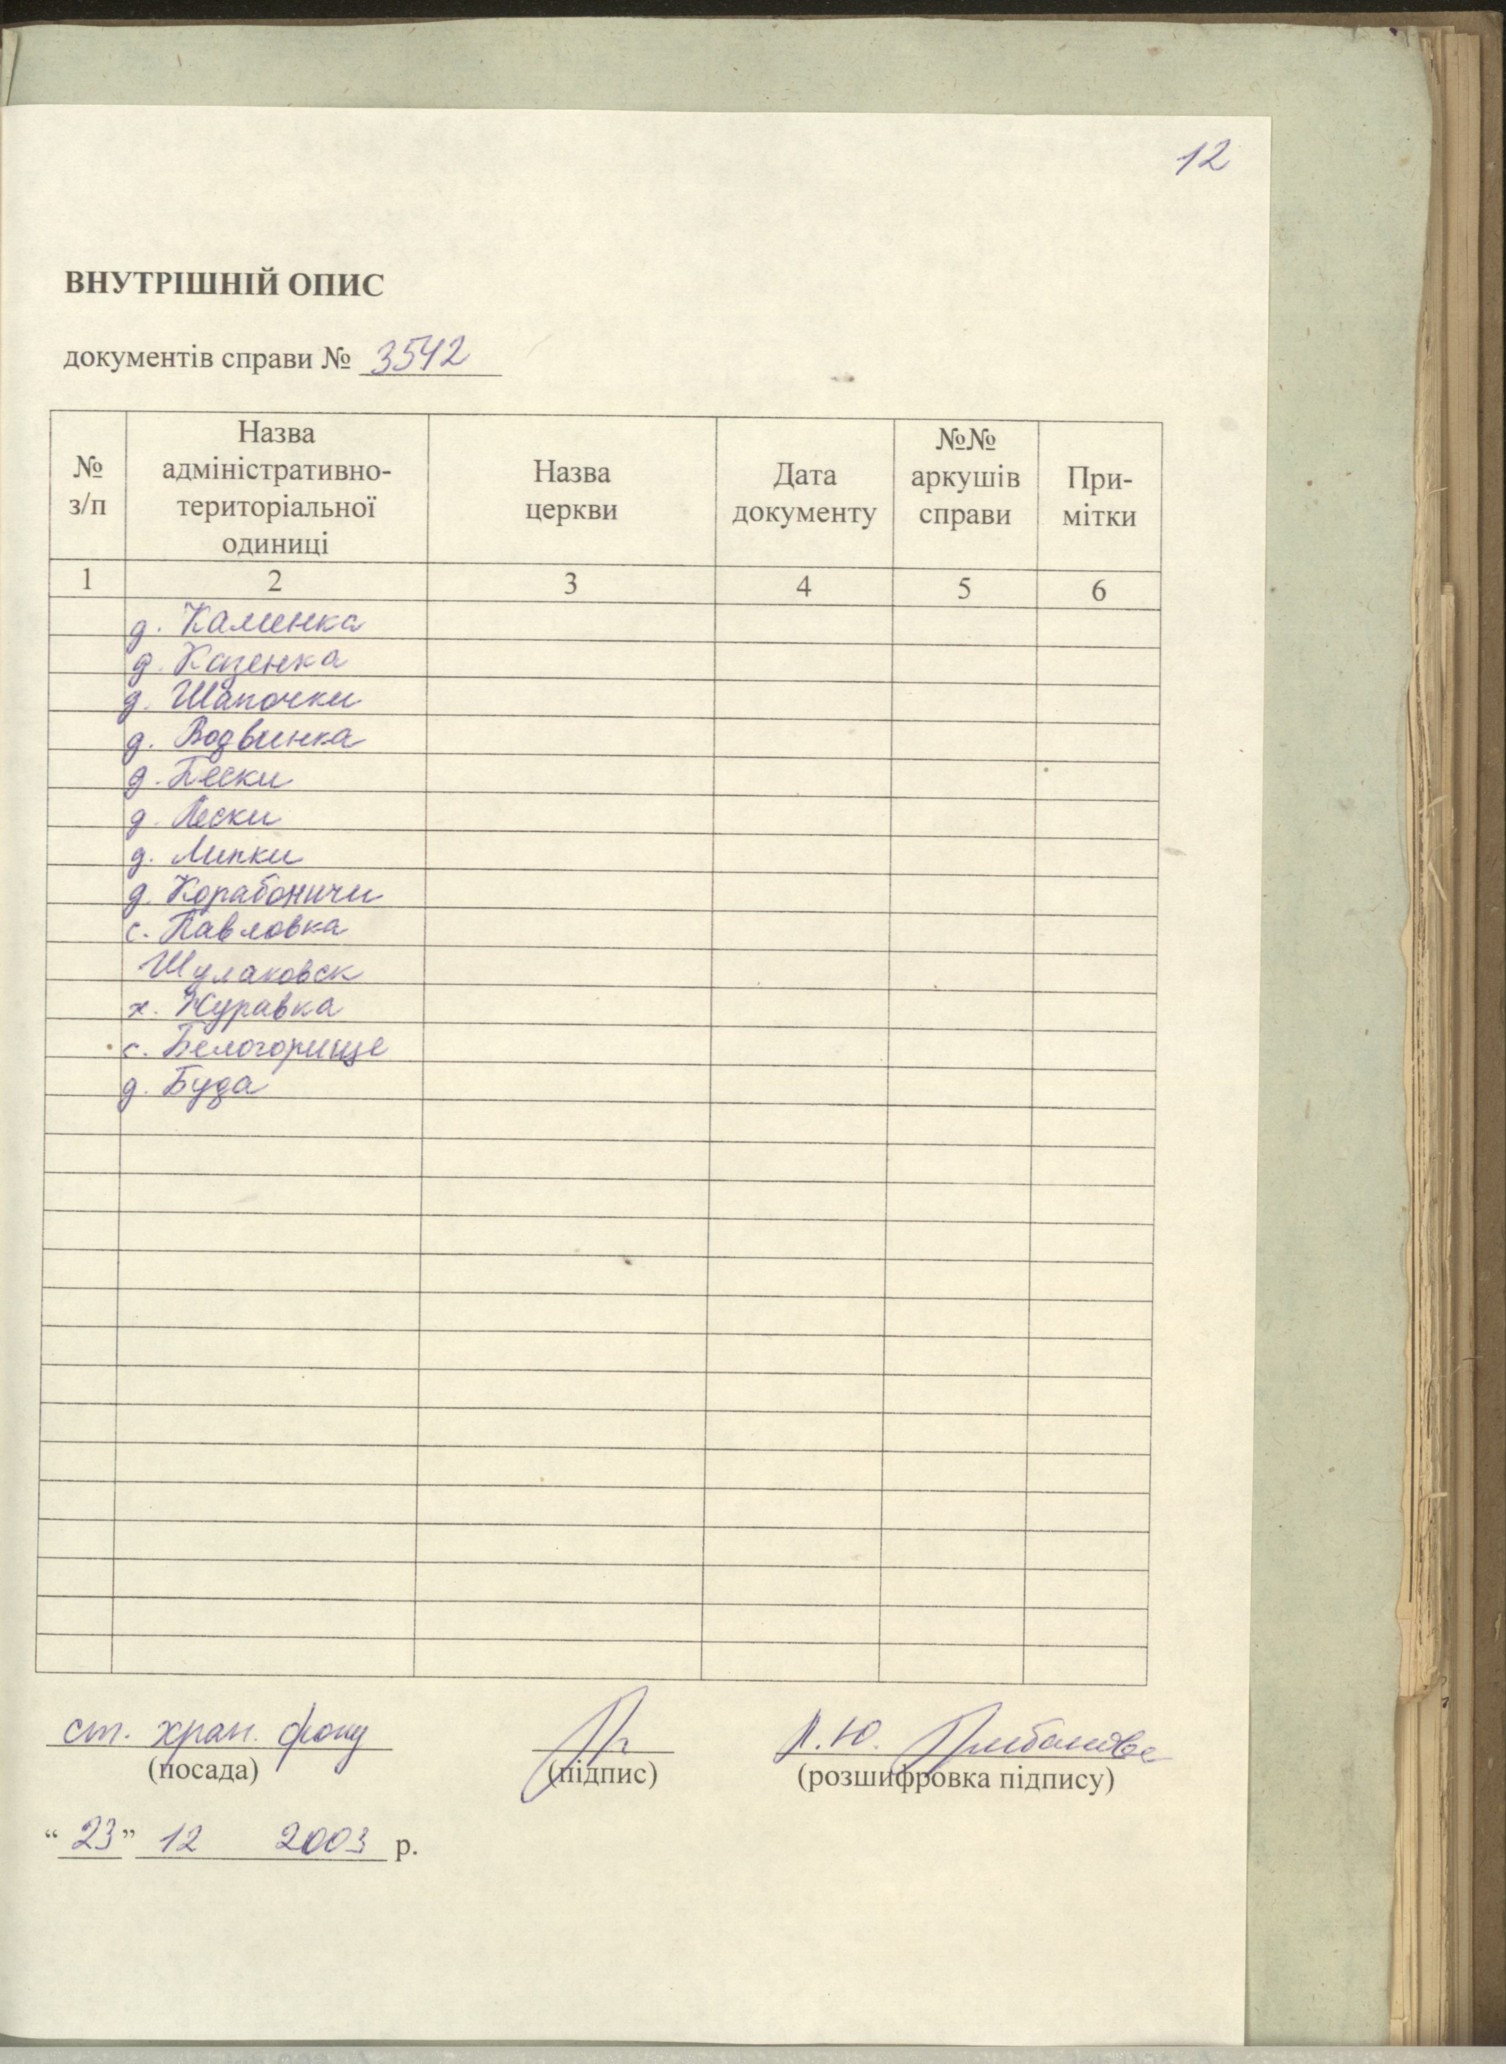 12
ВНУТРІШНІЙ ОПИС
документів справи № 3542
№ з/п
Назва адміністративно-територіальної одиниці
Назва церкви
Дата документу
№№ аркушів справи
При-мітки
1 2 3 4 5 6
д. Каменка
д. Казенка
д. Шапочки
д. Водвинка
д. Пески
д. Лески
д. Липки
д. Корабоничи
с. Павловка
Шулаковск
х. Журавка
с. Белогорище
д. Буда
ст. хран. фонд
(посада) (підпис) (розшифровка підпису)
Л.Ю.
“23” 12 2003 р.